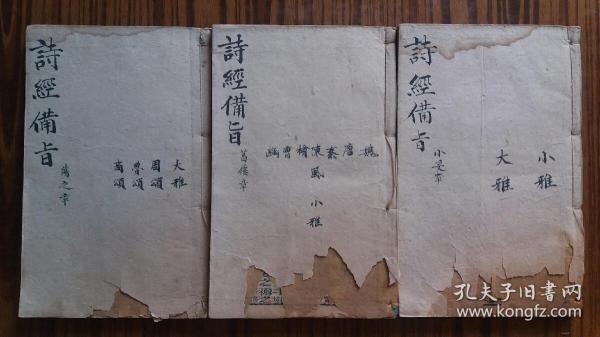 詩經備旨
大雅
周頌
魯頌
商頌
蕩之章
詩經備旨
魏
唐
秦
陳風
檜
曹
豳
小雅
葛屨章
詩經備旨
小雅
大雅
小旻章
孔夫子旧书网
www.kongfz.com